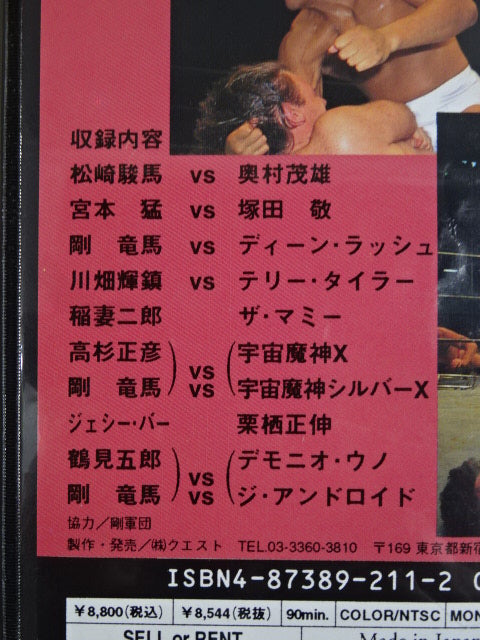 収録内容
松崎駿馬 vs 奥村茂雄
宮本 猛 vs 塚田 敬
剛 竜馬 vs ディーン・ラッシュ
川畑輝鎮 vs テリー・タイラー
稲妻二郎 ザ・マミー
高杉正彦 vs 宇宙魔神X
剛 竜馬 vs 宇宙魔神シルバーX
ジェシー・バー 栗栖正伸
鶴見五郎 vs デモニオ・ウノ
剛 竜馬 vs ジ・アンドロイド
協力/剛軍団
製作・発売/㈱クエスト TEL.03-3360-3810 〒169 東京都新宿
ISBN4-87389-211-2 C
¥8,800(税込) ¥8,544(税抜) 90min. COLOR/NTSC MON
SELL or RENT Made in Japan